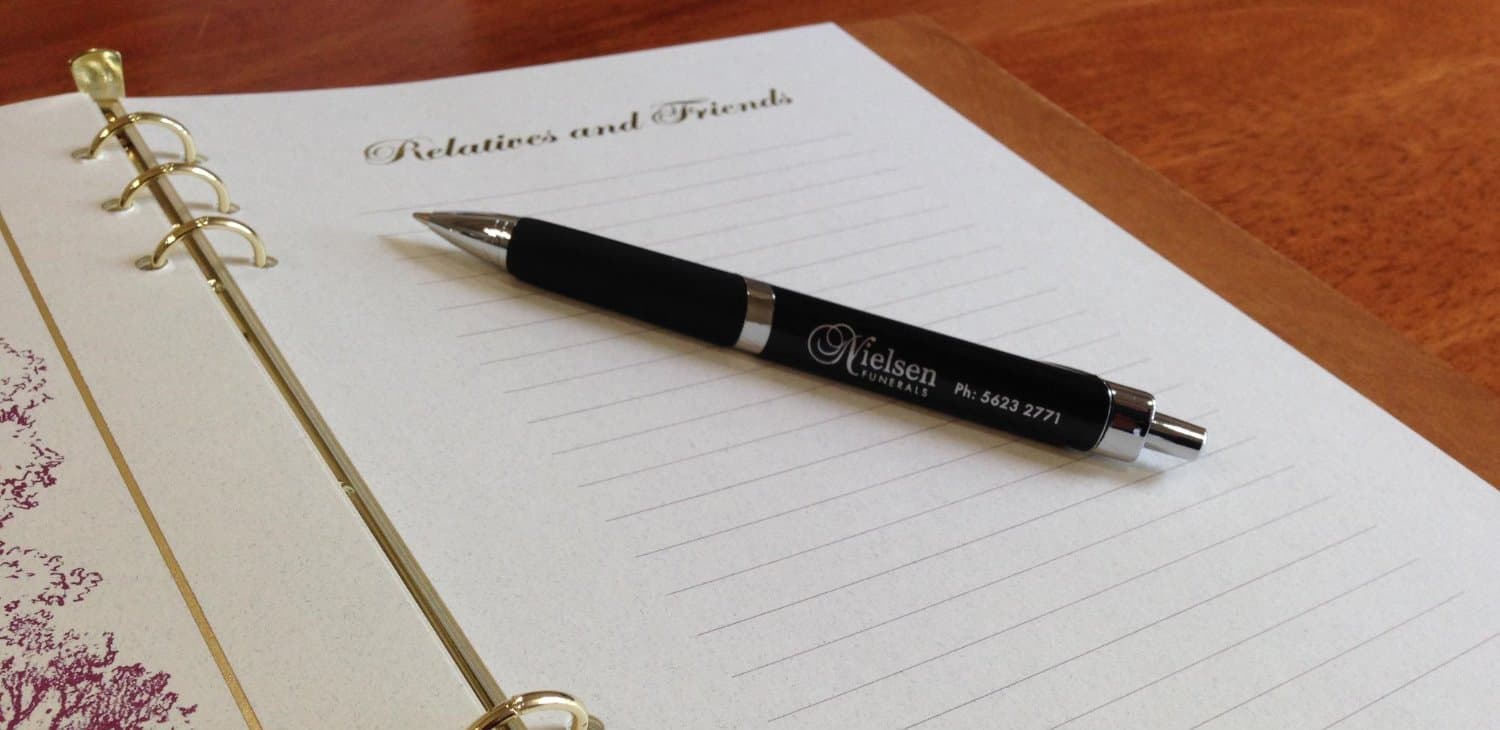 Relatives and Friends
Nielsen
FUNERALS
Ph: 5623 2771